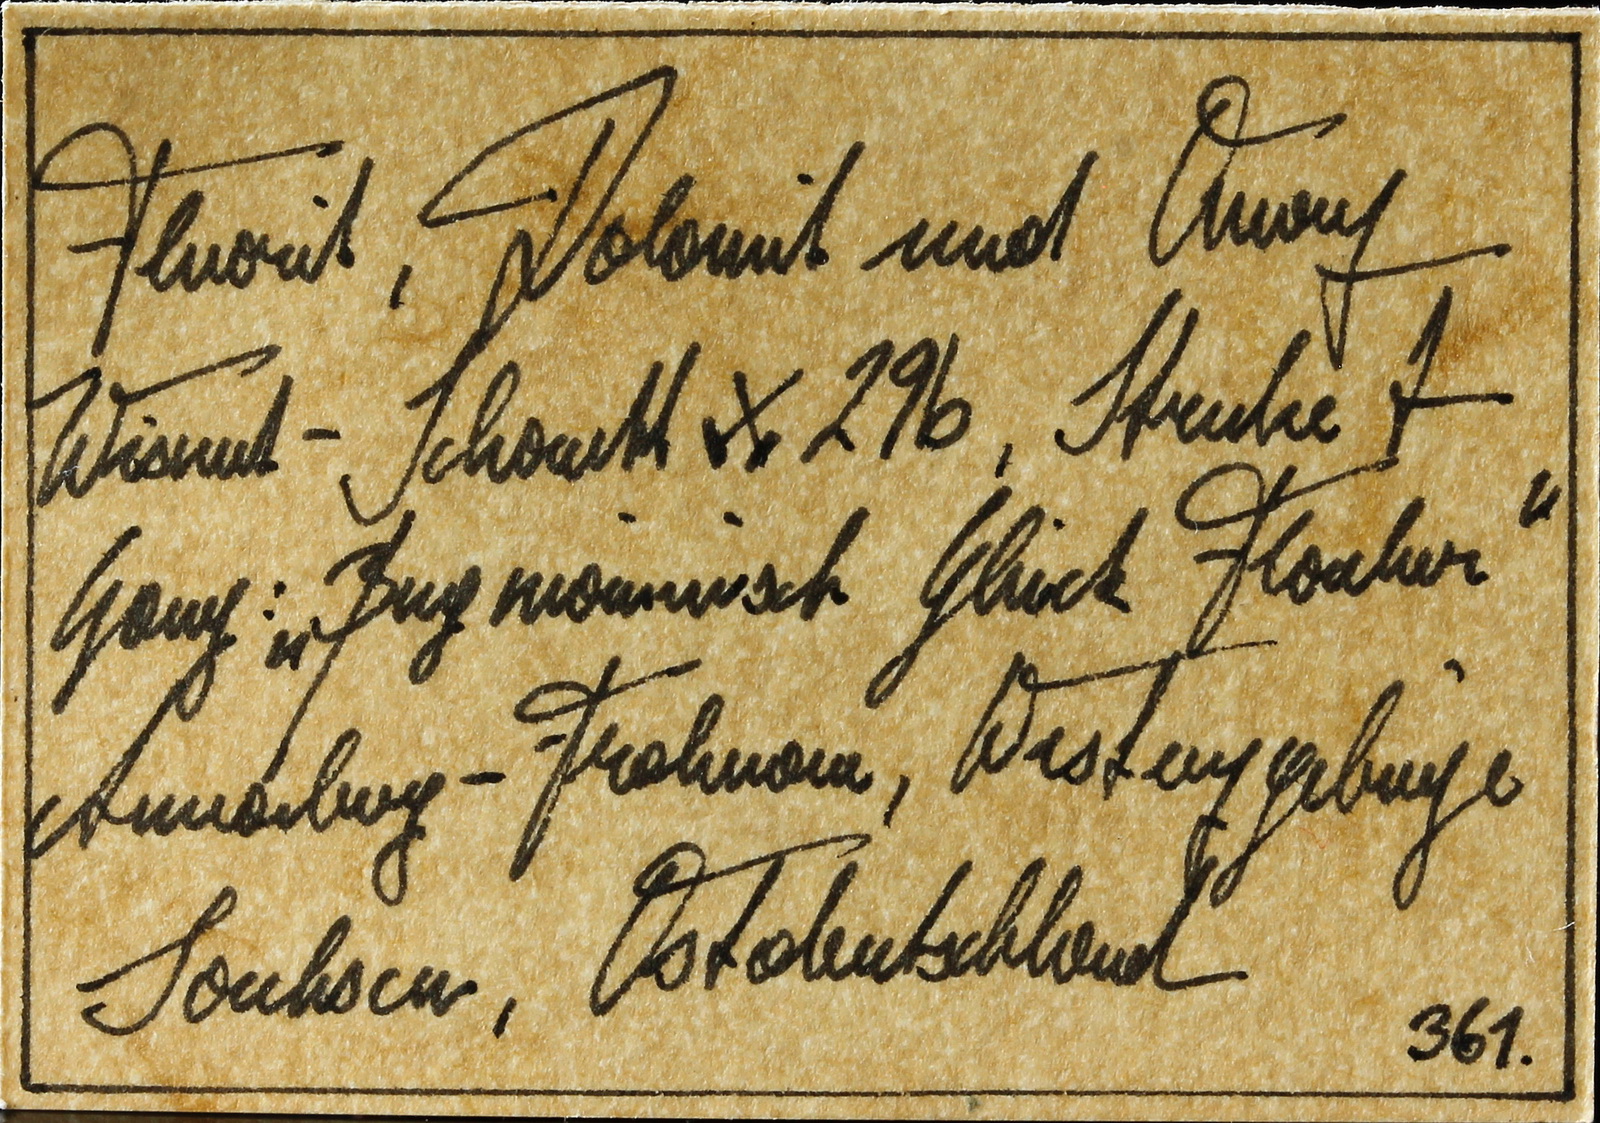 Fluorit, Dolomit und Quarz
Wismut-Schacht 296, Strecke
Gang: „Bergmännisch Glück Flacher"
Annaberg-Frohnau, Westerzgebirge
Sachsen, Ostdeutschland
361.